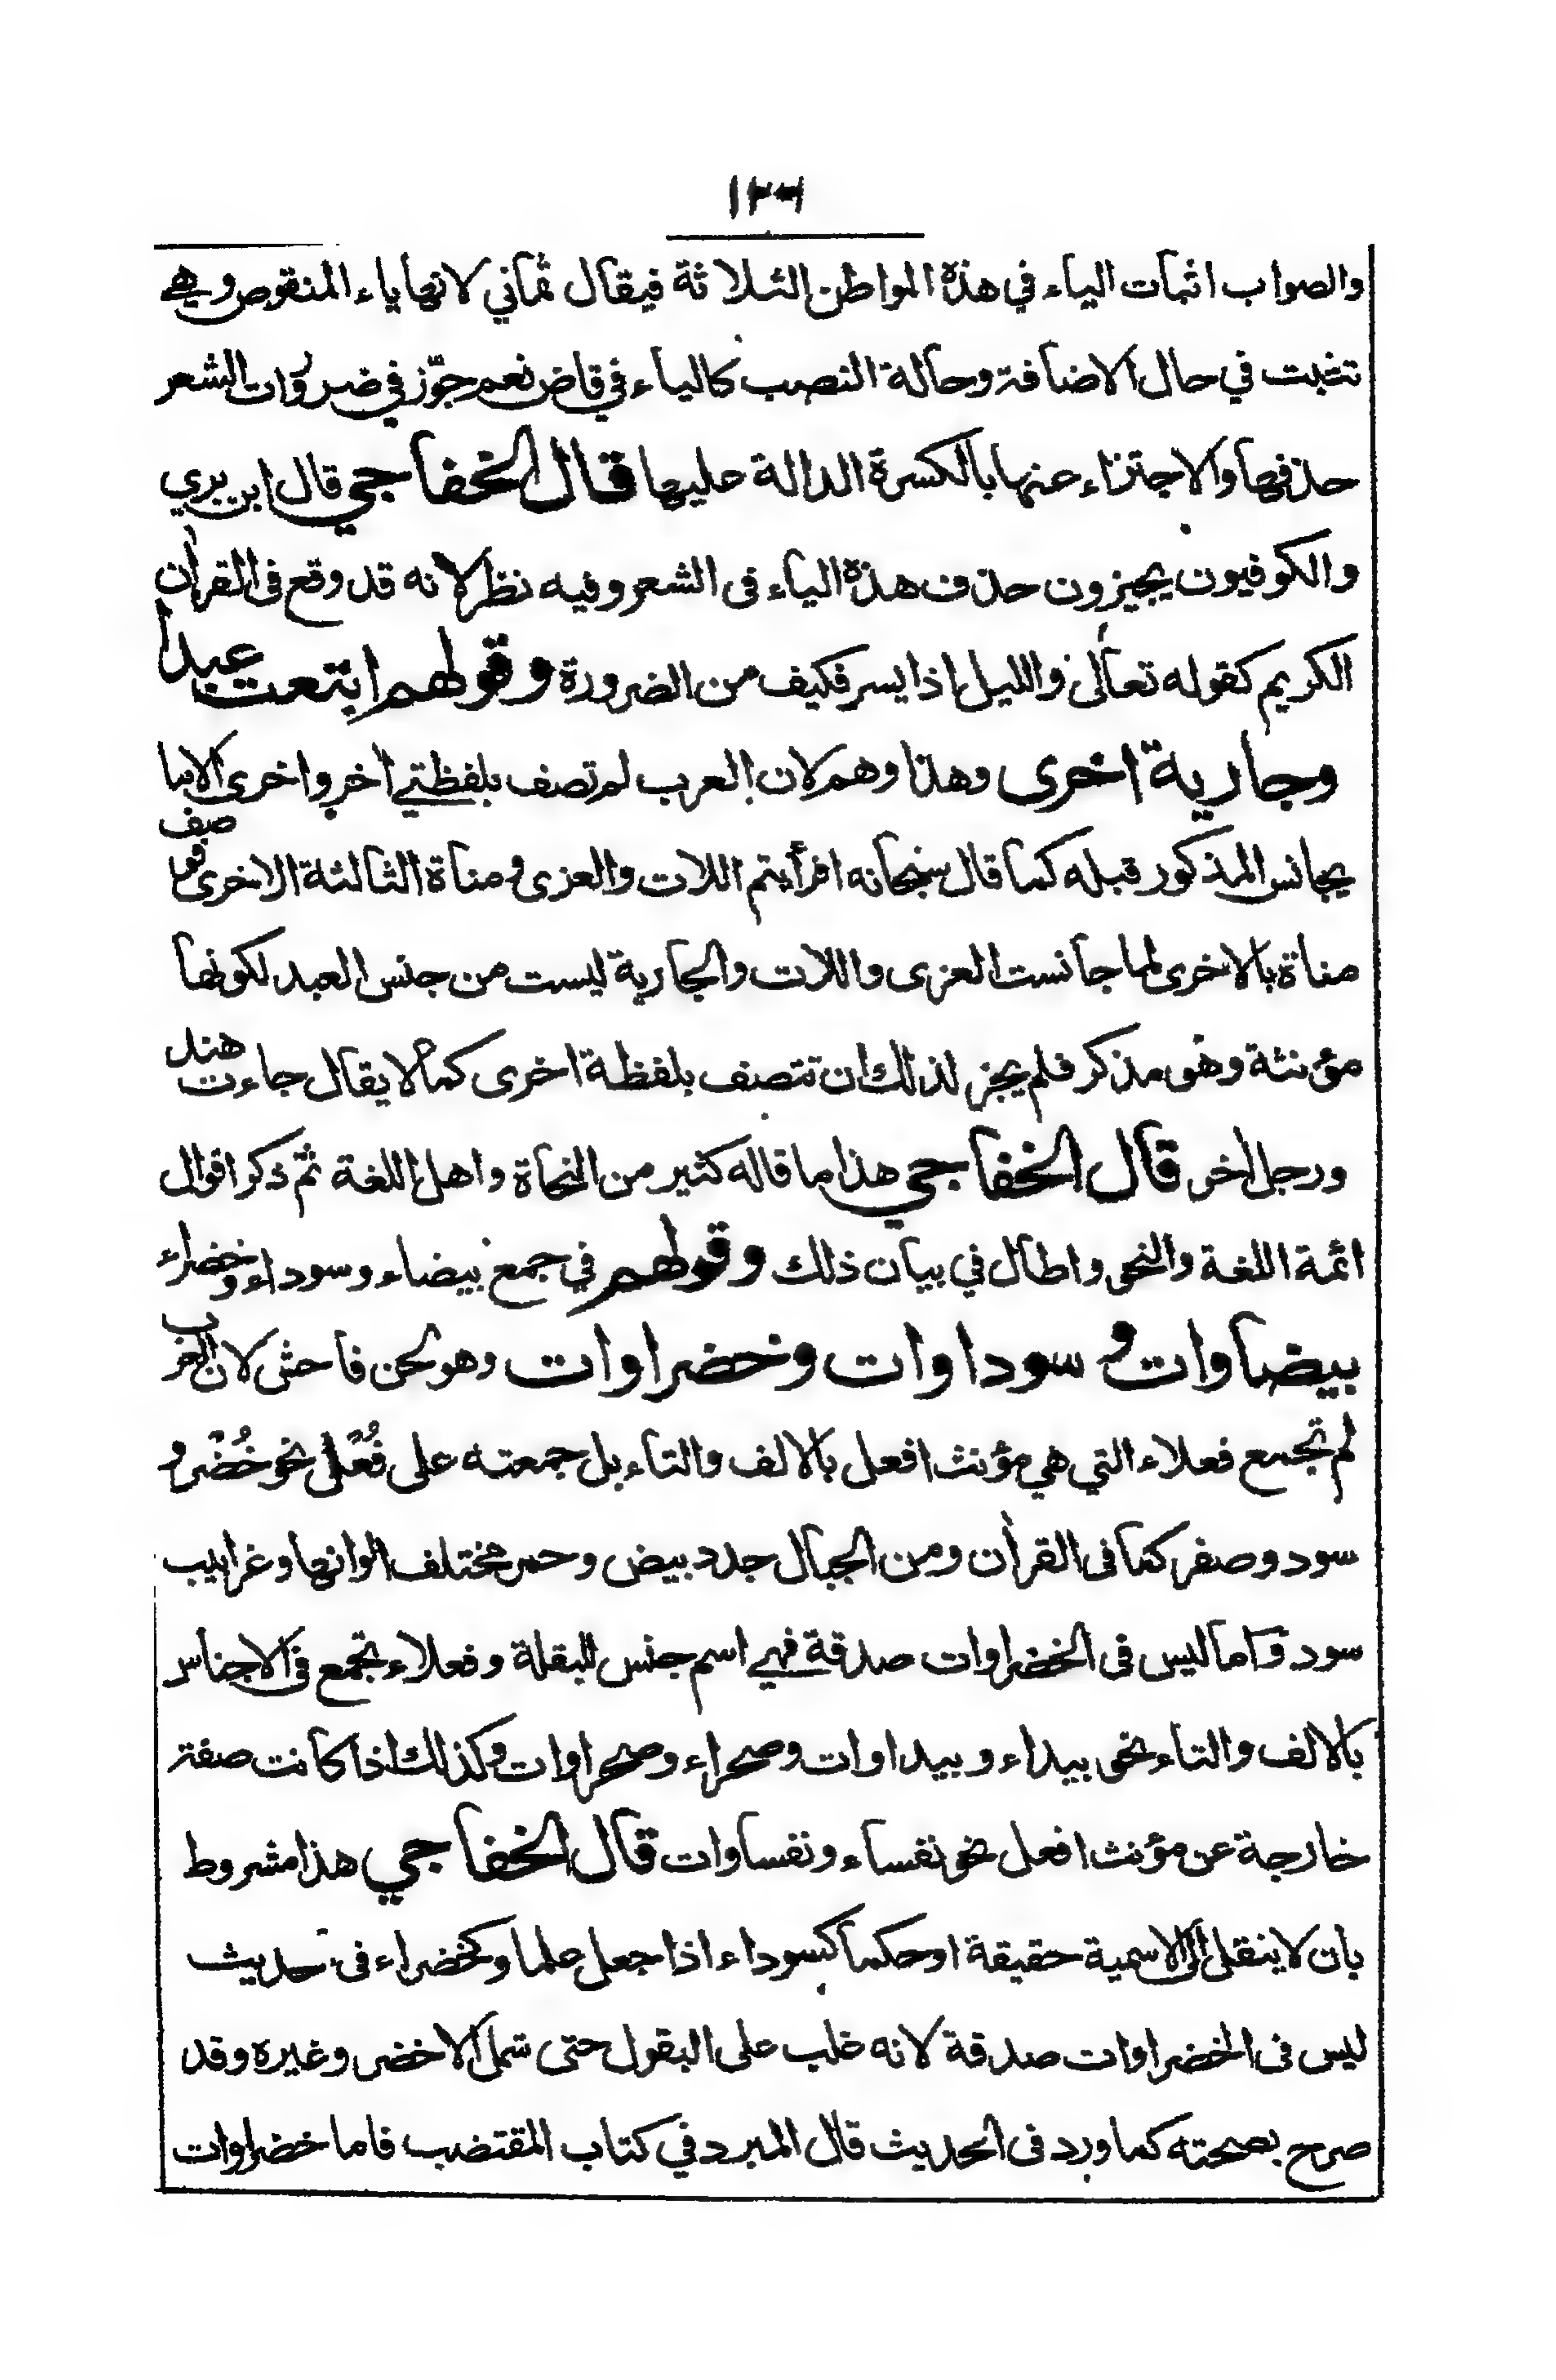 ١٣٦
والصواب اثبات الياء في هذه المواطن الثلاثة فيقال ثماني لانها ياء المنقوص وهي
تثبت في حال الاضافة وحالة النصب كالياء في قاض نعم جوّز في ضرورات الشعر
حذفها والاجتزاء عنها بالكسرة الدالة عليها قال الخفاجي قال ابن بري
والكوفيون يجيزون حذف هذه الياء فى الشعر وفيه نظر لانه قد وقع فى القرآن
الكريم كقوله تعالى والليل اذا يسر فكيف من الضرورة وقولهم ابتعت عبدا
وجارية اخرى وهذا وهم لان العرب لم تصف بلفظتي آخر واخرى الا ما
يجانس المذكور قبله كما قال سبحانه افرأيتم اللات والعزى ومناة الثالثة الاخرى فوصف
مناة بالاخرى لما جانست العزى واللات والجارية ليست من جنس العبد لكونها
مؤنثة وهو مذكر فلم يجز لذلك ان تتصف بلفظة اخرى كما لا يقال جاءت هند
ورجل آخر قال الخفاجي هذا ما قاله كثير من النحاة واهل اللغة ثم ذكر اقوال
ائمة اللغة والنحو واطال في بيان ذلك وقولهم في جمع بيضاء وسوداء وخضراء
بيضاوات و سوداوات وخضراوات وهو لحن فاحش لان العرب
لم تجمع فعلاء التي هي مؤنث افعل بالالف والتاء بل جمعته على فُعْل نحو خُضْر و
سود وصفر كما فى القرآن ومن الجبال جدد بيض وحمر مختلف الوانها وغرابيب
سود واما ليس فى الخضراوات صدقة فهي اسم جنس للبقلة وفعلاء تجمع فى الاجناس
بالالف والتاء نحو بيداء وبيداوات وصحراء وصحراوات وكذلك اذا كانت صفة
خارجة عن مؤنث افعل نحو نفساء ونفساوات قال الخفاجي هذا مشروط
بان لا ينقل الى الاسمية حقيقة او حكما كسوداء اذا جعل علما وكخضراء فى حديث
ليس فى الخضراوات صدقة لانه غلب على البقول حتى شمل الاخضر وغيره وقد
صرح بصحته كما ورد فى الحديث قال المبرد في كتاب المقتضب فاما خضراوات